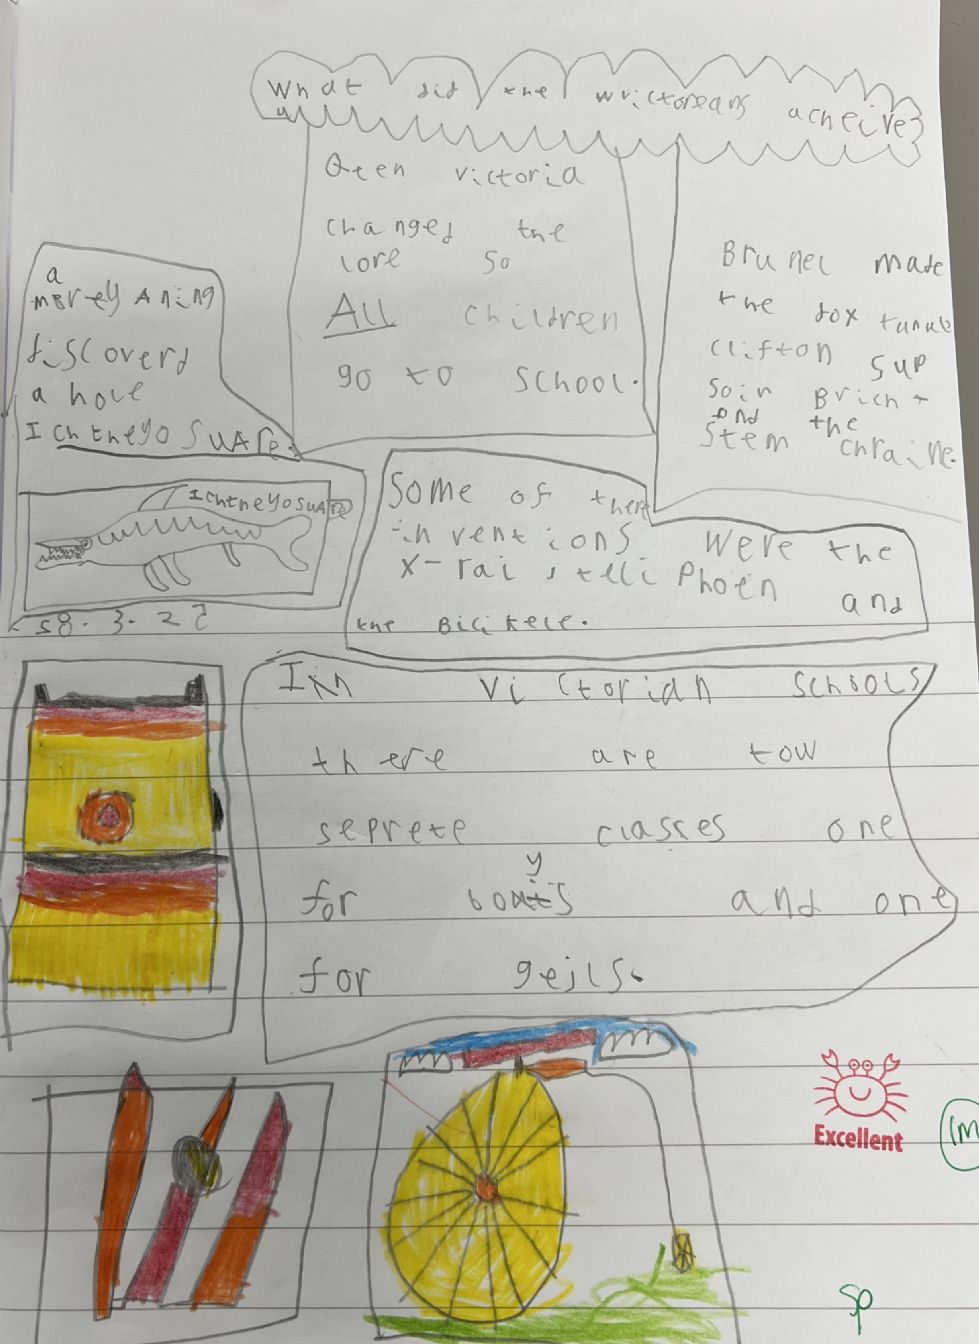 What did the wrictoreans acheive?
Qeen victoria
changed the
lore so
ALL children
go to school.
Brunel made
the dox tunale
Clifton sup
soin Brich +
and the
stem chraine.
a
merey Aning
discoverd
a hole
Ichtheyosuare.
Ichtheyosuare
58.3.22
Some of there
inventions were the
x-rai, telli Phoen and
the Bicikele.
In victorian schools
there are tow
seprete classes one
for boys and one
for gejls.
Excellent
Sp